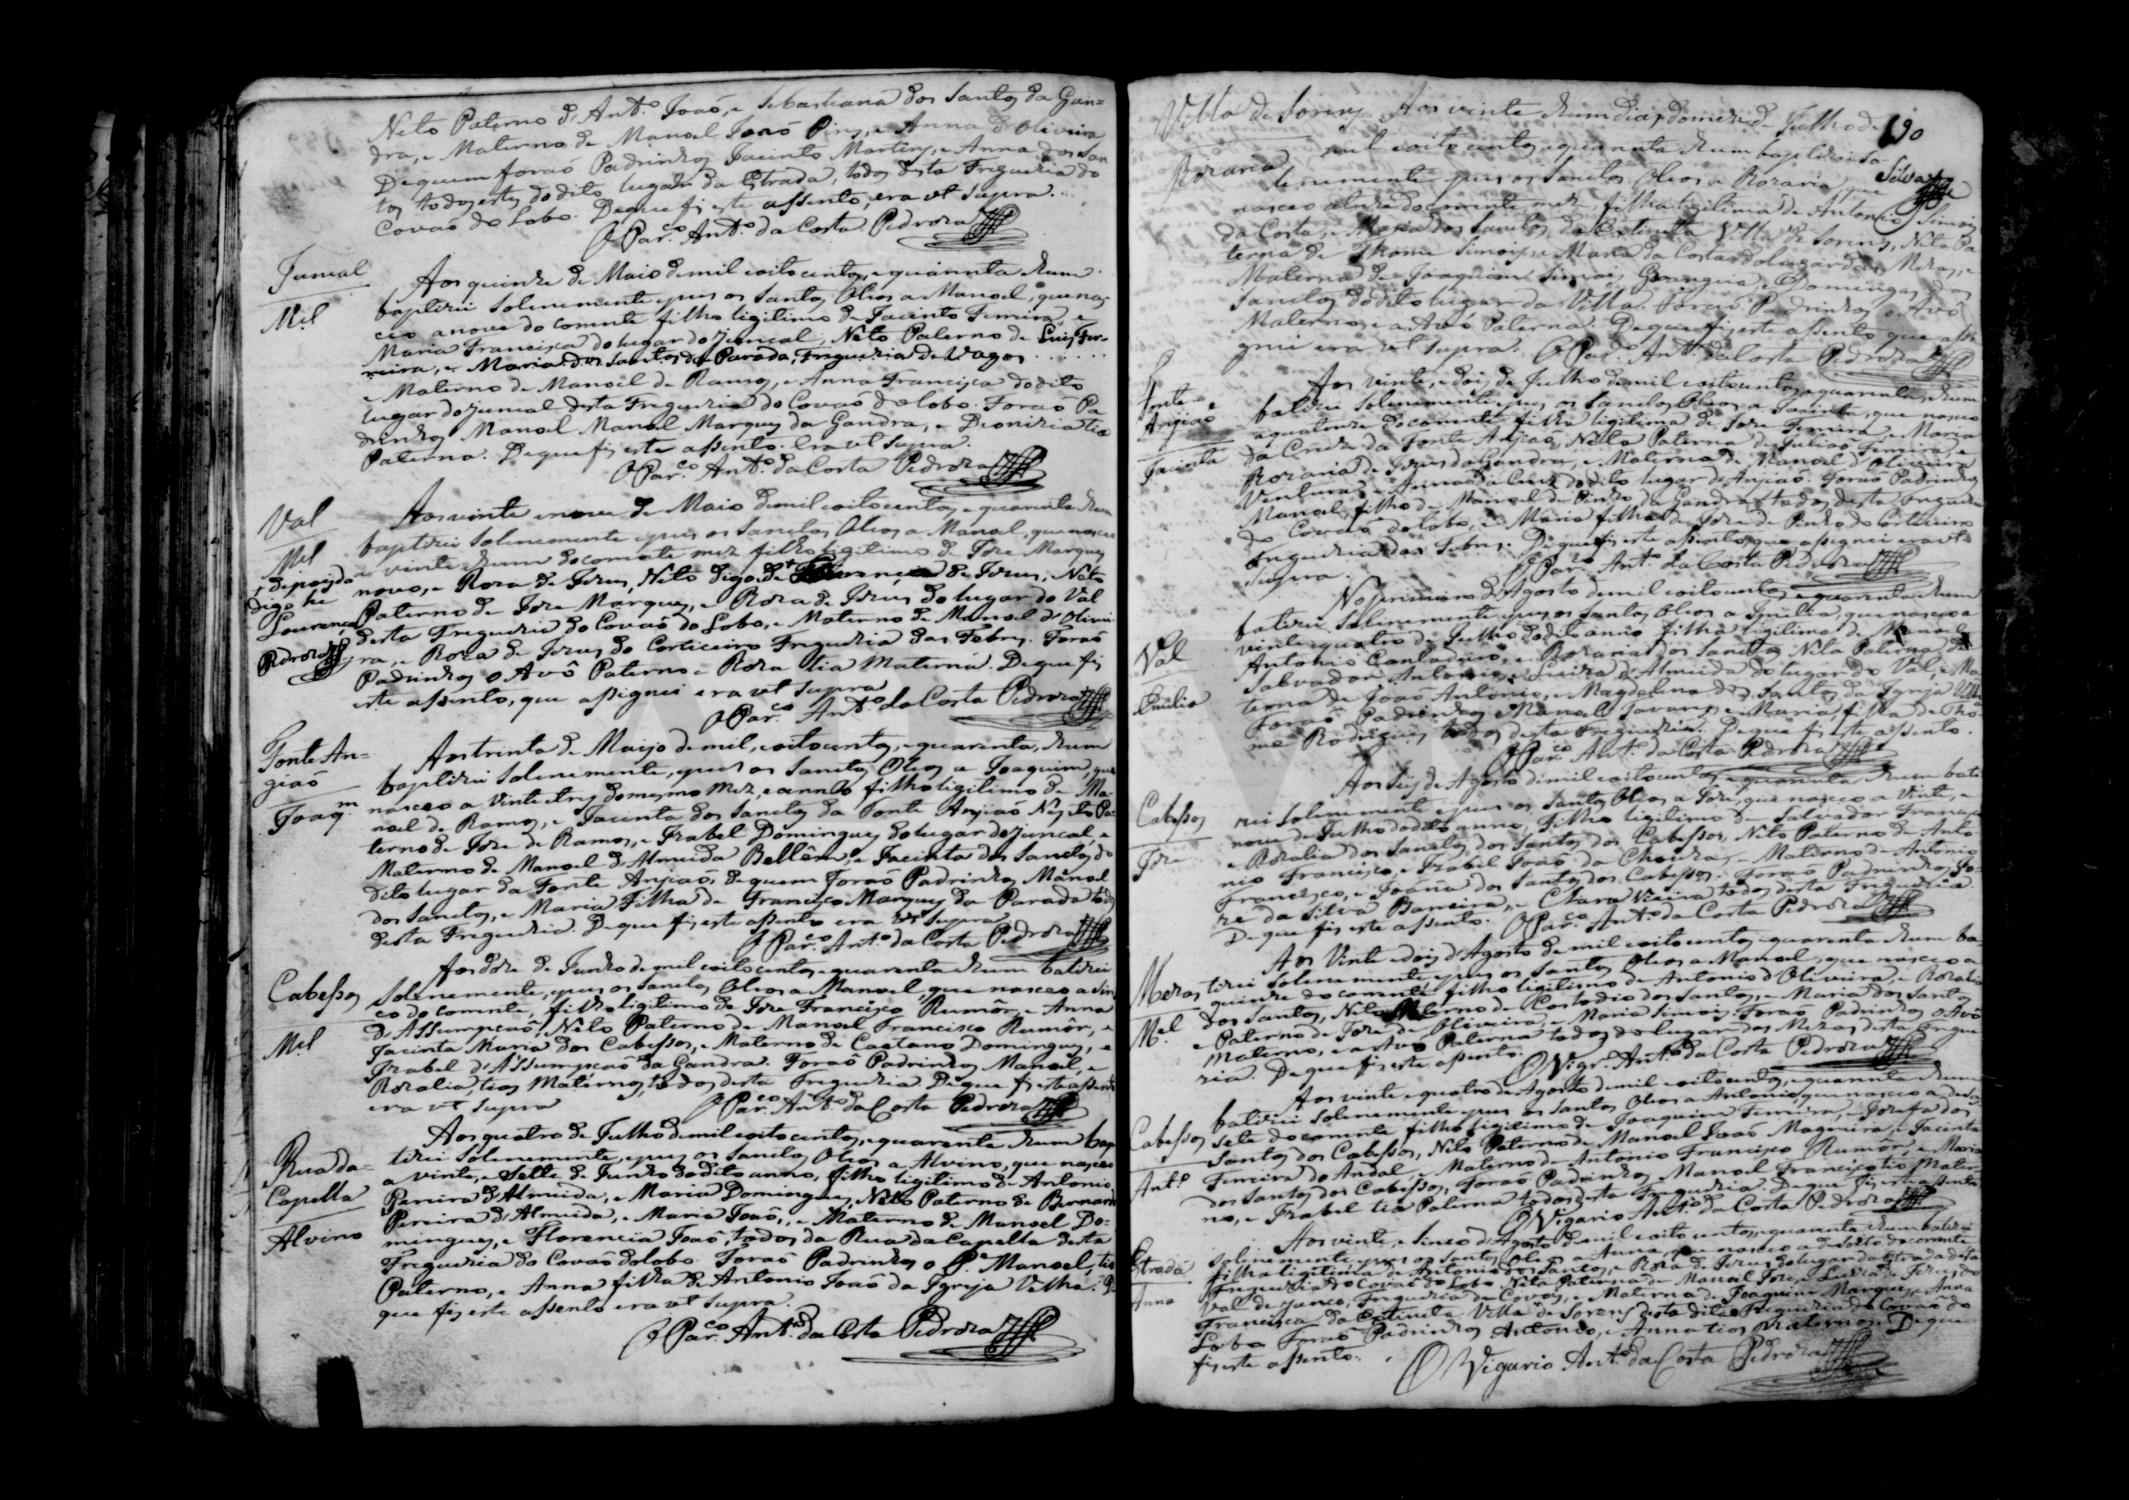 Neto Paterno de Ant.º Joaõ, e Sebastiana dos Santos da Gan=
dra, e Materno de Manoel Joaõ Pires, e Anna de Oliveira
De quem foraõ Padrinhos Jacinto Martins, e Anna dos San
tos todos estes do dito lugar da Estrada, todos desta Freguezia do
Covaõ do Lobo. De que fis este assento, era vt supra.
O Par.co Ant.º da Costa Pedroza
Juncal
M.el
Aos quinze de Maio de mil e oito centos, e quarenta e hum
baptizei solenemente, e pus os Santos Oleos a Manoel, que nas
ceo a nove do corrente filho legitimo de Jacinto Ferreira, e
Maria Francisca do lugar do Juncal, Neto Paterno de Luis Fer=
reira, e Maria dos Santos da Parada, Freguezia de Vagos
e Materno de Manoel de Ramos, e Anna Francisca do dito
lugar do Juncal desta Freguezia do Covaõ do Lobo. Foraõ Pa
drinhos Manoel Manoel Marques da Gandra, e Dionizia tia
Paterna. De que fis este assento. Era vt supra.
O Par.co Ant.º da Costa Pedroza
Val
M.el
depois do
digo he
Lourenço
Pedroza
Aos vinte e nove de Maio de mil e oito centos, e quarenta e hum
baptizei solenemente e pus os Sanctos Oleos a Manoel, que nasceo
a vinte e hum do corrente mez filho legitimo de Joze Marques
novo, e Roza de Jezus, Neto digo de Lourença de Jezus, Neto
Paterno de Joze Marques, e Roza de Jezus do lugar do Val
desta Freguezia do Covaõ do Lobo, e Materno de Manoel d'Olivei
ra, e Roza de Jezus do Corticeiro Freguezia das Febres. Foraõ
Padrinhos o Avô Paterno e Roza tia Materna. De que fis
este assento, que assignei era vt supra
O Par.co Ant.º da Costa Pedroza
Fonte An-
giaõ
Joaq.m
Aos trinta de Mayo de mil, e oito centos, e quarenta, e hum
baptizei solenemente, e pus os Sanctos Oleos a Joaquim, que
nasceo a vinte e tres do mesmo mez, e anno filho legitimo de Ma-
noel de Ramos, e Jacinta dos Sanctos da Fonte Angiaõ Neto Pa
terno de Joze de Ramos, e Izabel Domingues do lugar do Juncal e
Materno de Manoel d'Almeida Bellêm, e Jacinta dos Sanctos do
dito lugar da Fonte Angiaõ, de quem foraõ Padrinhos Manoel
dos Sanctos, e Maria Filha de Francisco Marques da Parada todos
desta Freguezia. De que fis este assento era vt supra
O Par.co Ant.º da Costa Pedroza
Cabessos
M.el
Aos doze de Junho de mil e oito centos e quarenta e hum batizei
solenemente, e pus os Sanctos Oleos a Manoel, que nasceo a sin
co do corrente, filho legitimo de Joze Francisco Rumôr, e Anna
d'Assumpçaõ, Neto Paterno de Manoel Francisco Rumôr, e
Jacinta Maria dos Cabessos, e Materno de Caetano Domingues, e
Izabel d'Assumpçaõ da Gandra. Foraõ Padrinhos Manoel, e
Rozalia, tios Maternos, todos desta Freguezia De que fis este assento
era vt supra
O Par.co Ant.º da Costa Pedroza
Rua da=
Capella
Alvino
Aos quatro de Julho de mil e oito centos, e quarenta e hum bap
tizei solenemente, e pus os Sanctos Oleos a Alvino, que nasceo
a vinte, e sette de Junho do dito anno, filho legitimo de Antonio
Pereira d'Almeida, e Maria Domingues, Neto Paterno de Bernardo
Pereira d'Almeida, e Maria Joaõ, e Materno de Manoel Do=
mingues, e Florencia Joaõ, todos da Rua da Capella desta
Freguezia do Covaõ do Lobo. Foraõ Padrinhos o P.e Manoel, tio
Paterno, e Anna filha de Antonio Joaõ da Igreja Velha. De
que fis este assento era vt supra.
O Par.co Ant.º da Costa Pedroza
190
Silva
Villa de Sorens
Rozaria
Aos vinte e hum dias do mez de Julho de
mil e oito centos, e quarenta e hum baptizei so-
lenemente e pus os Sanctos Oleos a Rozaria, que
nasceo a doze do corrente mez, filha legitima de Antonio Simois
da Costa, e Maria dos Sanctos da Villa de Sorens, Neta Pa
terna de Thome Simois, e Maria da Costa do lugar das Mezas, e
Materna de Joaquim Simois e Domingas dos
Sanctos do dito lugar da Villa. Foraõ Padrinhos o Avô
Materno, e a Avó Paterna. De que fis este assento que assi
gnei era vt supra. O Par.co Ant.º da Costa Pedroza
Fonte
Angiaõ
Jacinta
Aos vinte, e dois de Julho de mil e oito centos, e quarenta, e hum
batizei solenemente, e pus os Sanctos Oleos a Jacinta, que nasceo
a quatorze do corrente filha legitima de Joze Ferreira, e Maria
da Cruz da Fonte Angiaõ, Neta Paterna de Juliaõ Ferreira, e
Rozaria de Jezus da Gandra, e Materna de Manoel d'Oliveira
Ventura, e Anna da Cruz do dito lugar de Angiaõ. Foraõ Padrinhos
Manoel, filho de Manoel de Pinho da Gandra todos desta Freguezia
do Covaõ do Lobo, e Maria filha de Joze de Pinho do Corticeiro
Freguezia das Febres. De que fis este assento, que assignei era vt
supra. O Par.co Ant.º da Costa Pedroza
Val
Emilia
No primeiro d'Agosto de mil e oito centos, e quarenta e hum
batizei solenemente, e pus os Santos Oleos a Emilia, que nasceo a
vinte e quatro de Julho do dito anno filha legitima de Manoel
Antonio Cantadeiro, e Rozaria dos Sanctos, Neta Paterna de
Salvador Antonio, e Luiza d'Almeida do lugar do Val, e Ma
terna de Joaõ Antonio, e Magdalena dos Santos da Igreja Velha
Foraõ Padrinhos Manoel Tavares, e Maria filha de Tho-
me Rodrigues todos desta Freguezia. De que fis este assento.
O Par.co Ant.º da Costa Pedroza
Cabessos
Joze
Aos seis de Agosto de mil e oito centos, e quarenta e hum bati
zei solenemente e pus os Santos Oleos a Joze, que nasceo a vinte, e
nove de Julho do dito anno, filho legitimo de Salvador Francisco
e Rozalia dos Sanctos dos Santos dos Cabessos, Neto Paterno de Anto
nio Francisco, e Izabel Joaõ da Chouza, e Materno de Antonio
Francisco, e Joana dos Santos dos Cabessos. Foraõ Padrinhos Jo-
ze da Silva Barreira, e Clara Vieira todos desta Freguezia.
De que fis este assento. O Par.co Ant.º da Costa Pedroza
Mezas
M.el
Aos vinte e dois d'Agosto de mil e oito centos e quarenta e hum ba-
tizei solenemente e pus os Santos Oleos a Manoel, que nasceo a
quinze do corrente filho legitimo de Antonio d'Oliveira, e Rozalia
dos Santos, Neto Materno de Custodio dos Santos, e Maria dos Santos
e Paterno de Joze de Oliveira, e Maria Simois. Foraõ Padrinhos o Avô
Materno, e a Avó Paterna todos do lugar das Mezas desta Fregue
zia. De que fis este assento. O Vigr.º Ant.º da Costa Pedroza
Cabessos
Ant.º
Aos vinte e quatro de Agosto de mil e oito centos, e quarenta e hum
batizei solenemente e pus os Santos Oleos a Antonio, que nasceo a deza
sete do corrente filho legitimo de Joaquim Ferreira, e Jozefa dos
Santos dos Cabessos, Neto Paterno de Manoel Joaõ Magueira, e Jacinta
Ferreira do Andal, e Materno de Antonio Francisco Rumôr, e Maria
dos Santos dos Cabessos, Foraõ Padrinhos Manoel Francisco tio Mater-
no, e Izabel tia Paterna todos desta Freguezia. De que fis este assento
O Vigario Ant.º da Costa Pedroza
Estrada
Anna
Aos vinte, e sinco d'Agosto de mil e oito centos, e quarenta e hum batizei
solenemente, e pus os Santos Oleos a Anna, que nasceo a dezoito do corrente
filha legitima de Antonio dos Santos, e Roza de Jezus do lugar da Estrada desta
Freguezia do Covaõ do Lobo Neta Paterna de Manoel Joze, e Luiza de Jezus do
Val de Junco, Freguezia de Covões, e Materna de Joaquim Marques, e Anna
Francisca da Villa de Sorens desta dita Freguezia do Covaõ do
Lobo Foraõ Padrinhos Antonio, e Anna tios Maternos. De que
fis este assento.
O Vigario Ant.º da Costa Pedroza